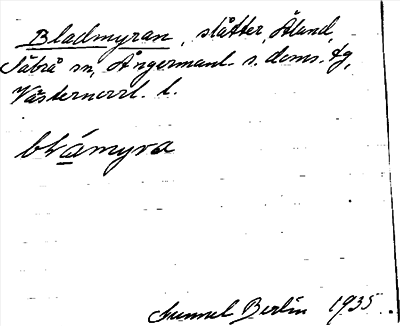 Bladmyran, slåtter, Åland,
Säbrå sn, Ångermanl. s. doms. tg,
Västernorrl. l.
blàmyra
Gunnel Berlin 1935.